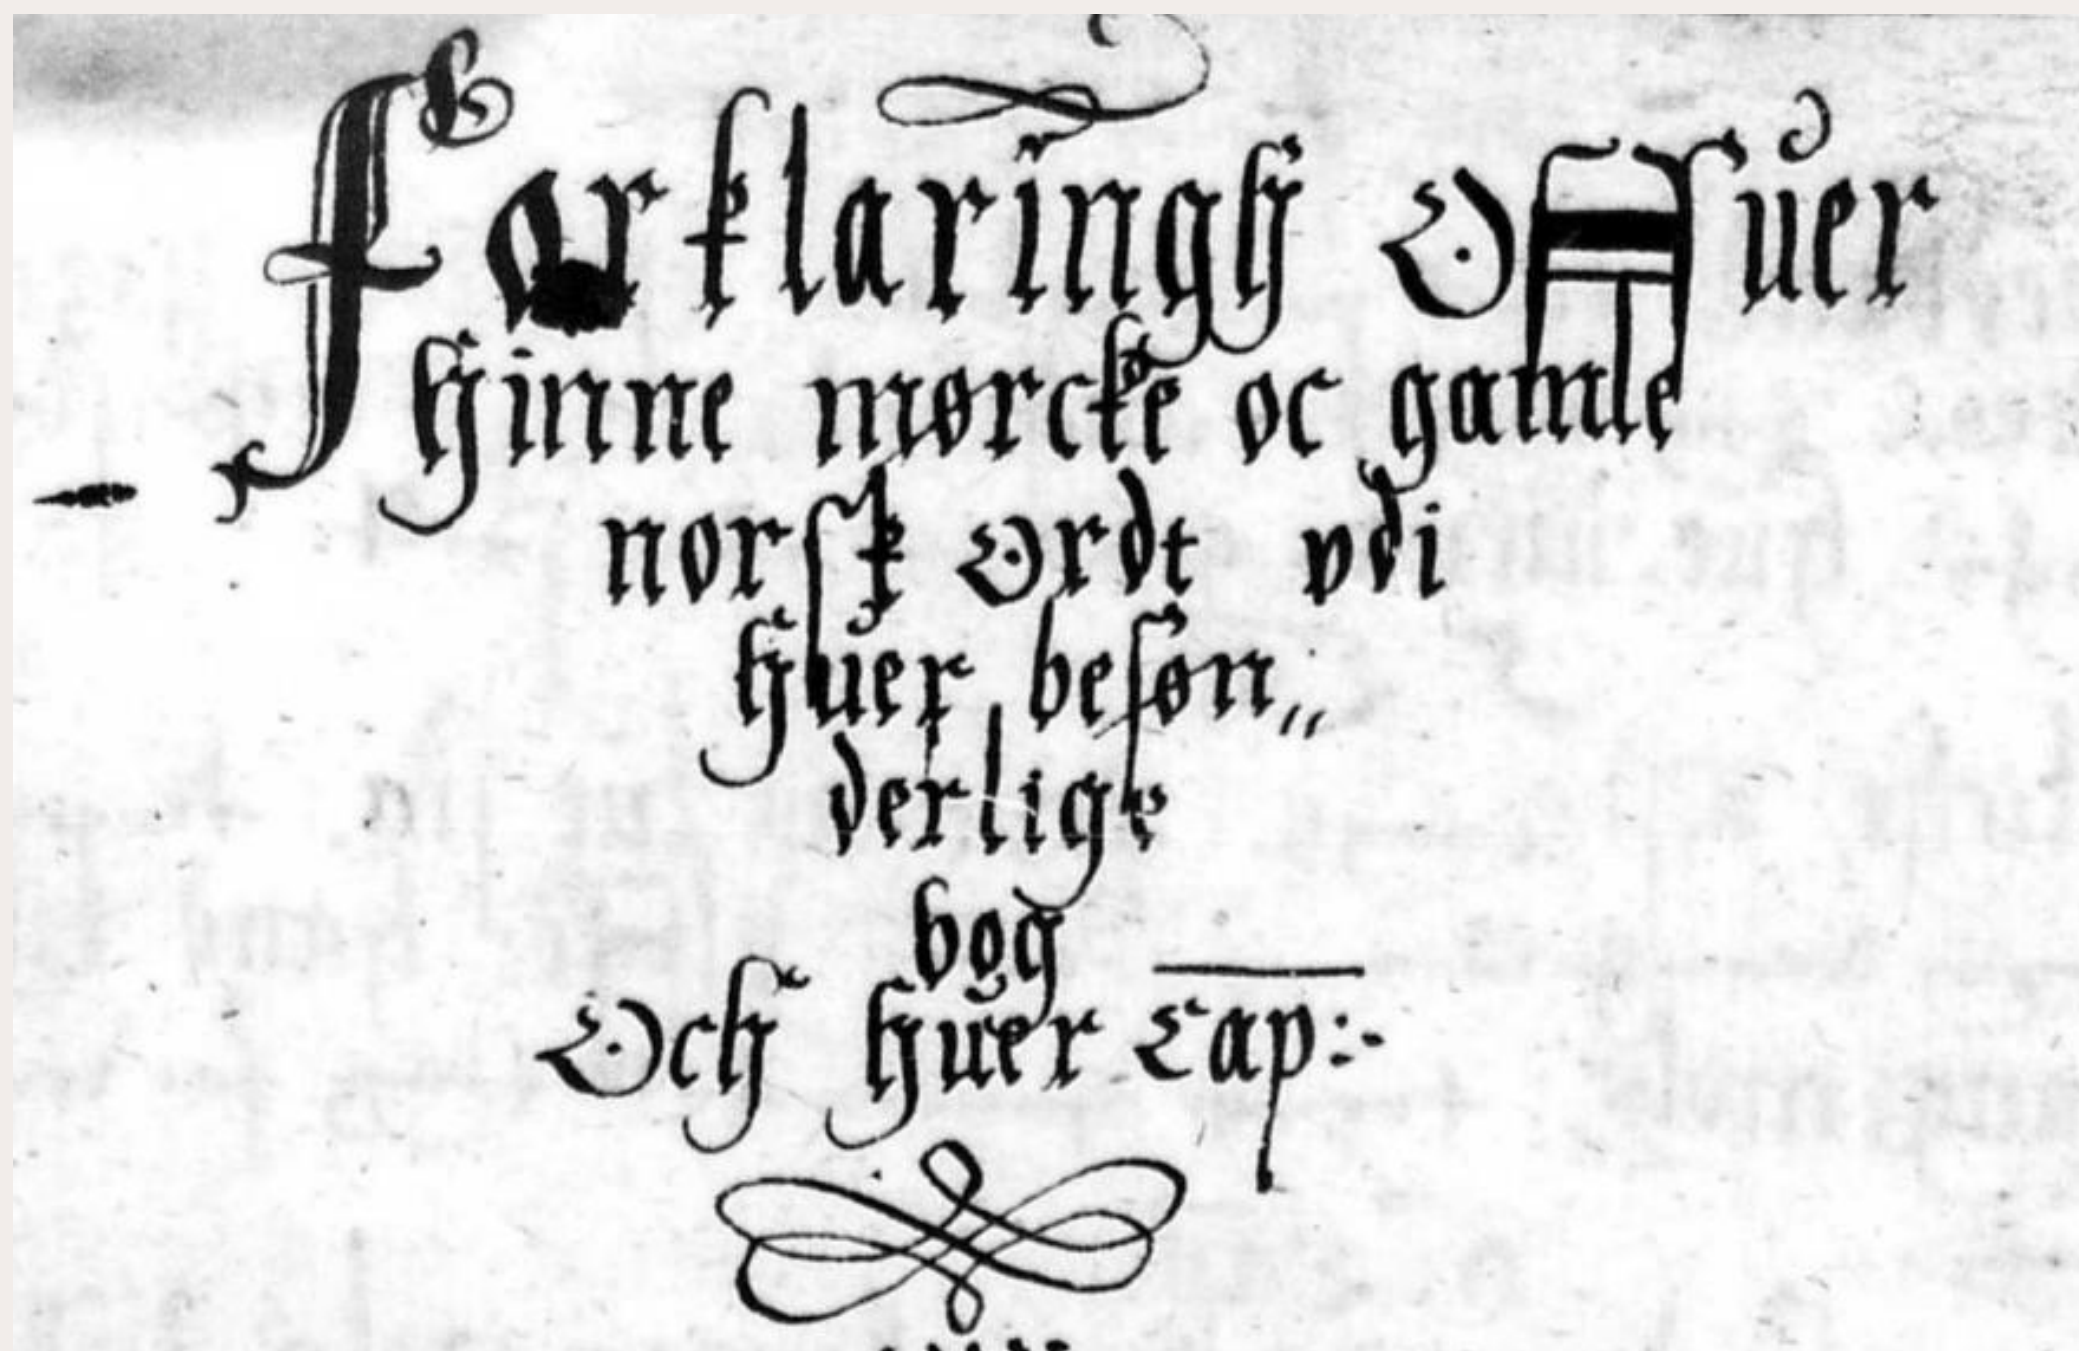 Forklaringh Offuer
hinne mørcke oc gamle
norsk Ordt vdi
huer besøn„
derlige
bog
Och huer Cap:-